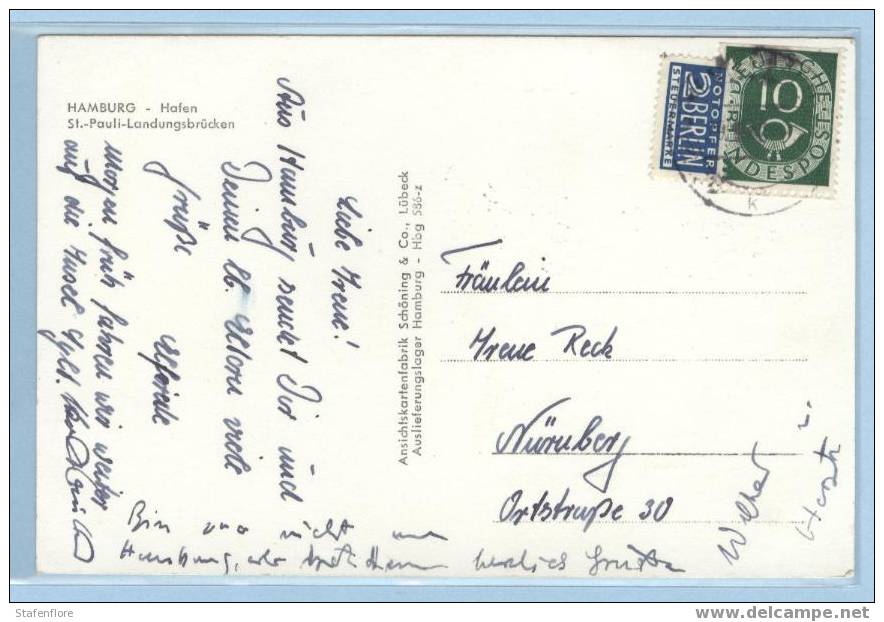 HAMBURG - Hafen
St.-Pauli-Landungsbrücken
Liebe Irene!
Aus Hamburg sendet Dir und
Deinen lb. Eltern viele
Grüße
Elfriede
Morgen früh fahren wir weiter
auf die Insel Sylt.
Bin zwar nicht
Hamburg, herzlics Grüße
Ansichtskartenfabrik Schöning & Co., Lübeck
Auslieferungslager Hamburg - Hbg 586-z
NOTOPFER
2 BERLIN
STEUERMARKE
DEUTSCHE
BUNDESPOST
10
K
Fräulein
Irene Reck
Nürnberg
Ortstraße 30
u.
Horst
Stafenflore
delcampe.net